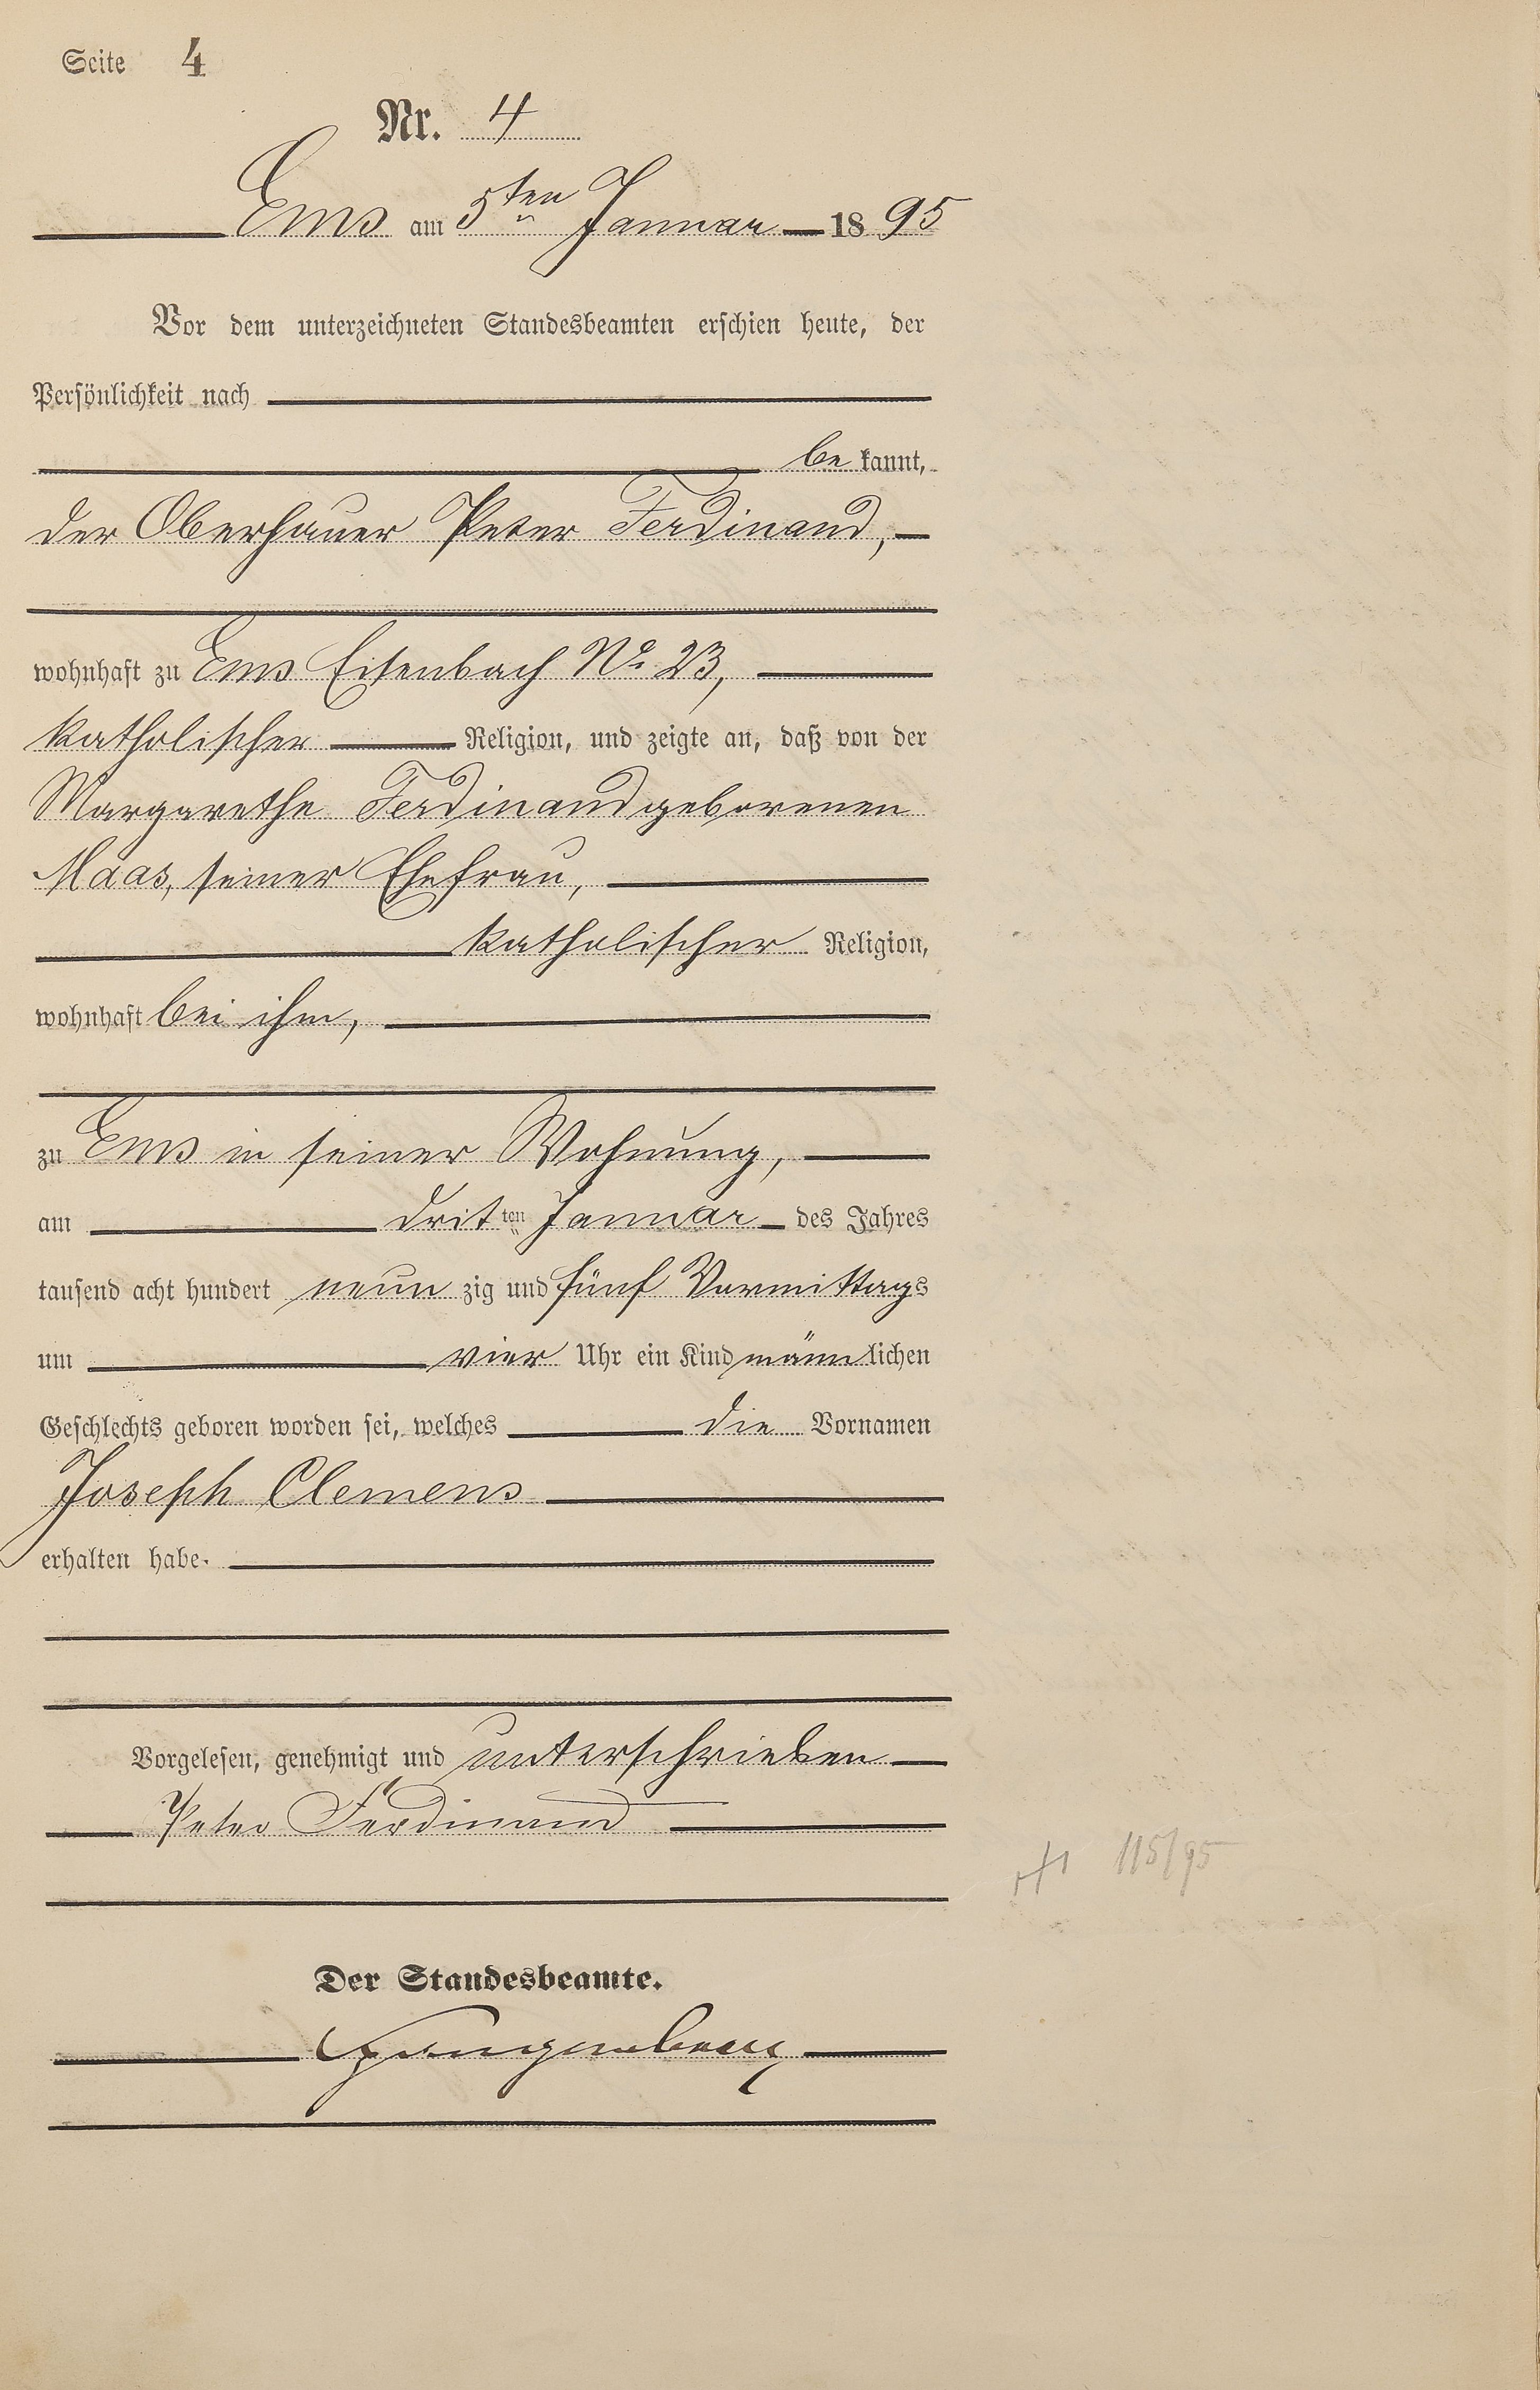 Seite 4
Nr. 4
Ems am 5ten Januar 1895
Vor dem unterzeichneten Standesbeamten erschien heute, der
Persönlichkeit nach
be kannt,
der Oberhauer Peter Ferdinand,
wohnhaft zu Ems Eisenbach No 23,
katholischer Religion, und zeigte an, daß von der
Margarethe Ferdinand geborenen
Maas, seiner Ehefrau,
katholischer Religion,
wohnhaft bei ihm,
zu Ems in seiner Wohnung,
am dritten Januar des Jahres
tausend acht hundert neun zig und fünf Vormittags
um vier Uhr ein Kind männlichen
Geschlechts geboren worden sei, welches die Vornamen
Joseph Clemens
erhalten habe.
Vorgelesen, genehmigt und unterschrieben
Peter Ferdinand
115/95
Der Standesbeamte.